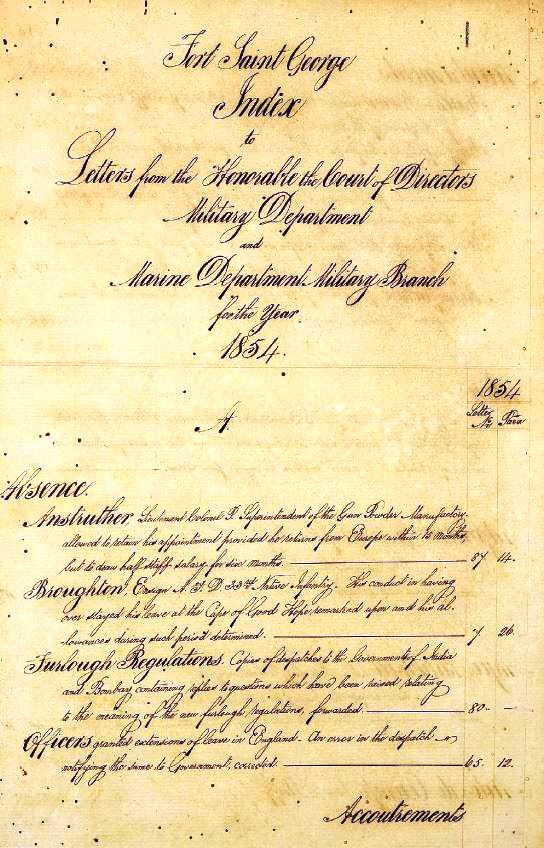 Fort Saint George
Index
to
Letters from the Honorable the Court of Directors
Military Department
and
Marine Department Military Branch
for the Year
1854.
1854
Letter No. Para
A.
Absence.
Anstruther, Lieutenant Colonel P. Superintendent of the Gun Powder Manufactory.
allowed to retain his appointment provided he returns from Europe within 15 months,
but to draw half staff salary for six months. 87 14.
Broughton, Ensign N. F. D. 33rd Native Infantry. His conduct in having
over stayed his leave at the Cape of Good Hope, remarked upon and his al-
lowances during such period determined. 7 26.
Furlough Regulations. Copies of despatches to the Governments of India
and Bombay containing replies to questions which have been raised relating
to the meaning of the new furlough regulations, forwarded. 80 -
Officers granted extensions of leave in England. An error in the despatch
notifying the same to Government, corrected. 65. 12.
Accoutrements